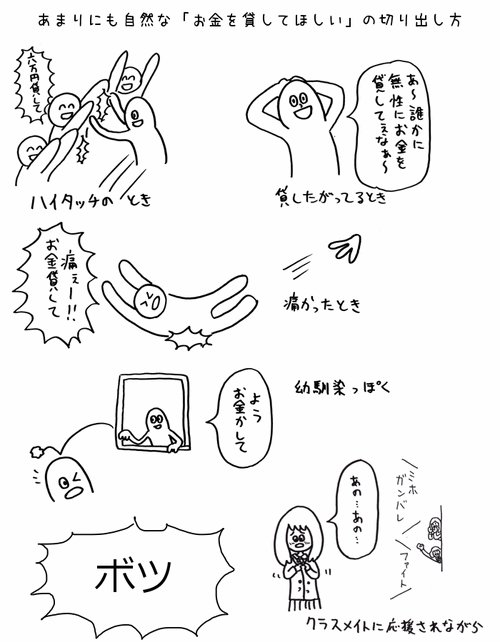 あまりにも自然な「お金を貸してほしい」の切り出し方
六万円貸して
ハイタッチの とき
あ〜誰かに
無性にお金を
貸してえなぁ〜
貸したがってるとき
痛ぇー!!
お金貸して
痛かったとき
よう
お金かして
幼馴染っぽく
ボツ
あの…あの…
ミホ
ガンバレ
ファイト
クラスメイトに応援されながら